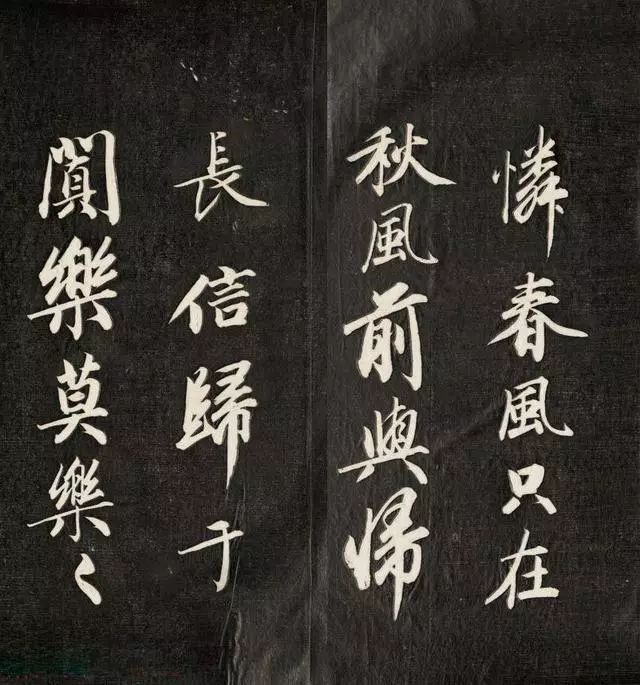 憐春風只在
秋風前與帰
長信歸于
闐樂莫樂〻